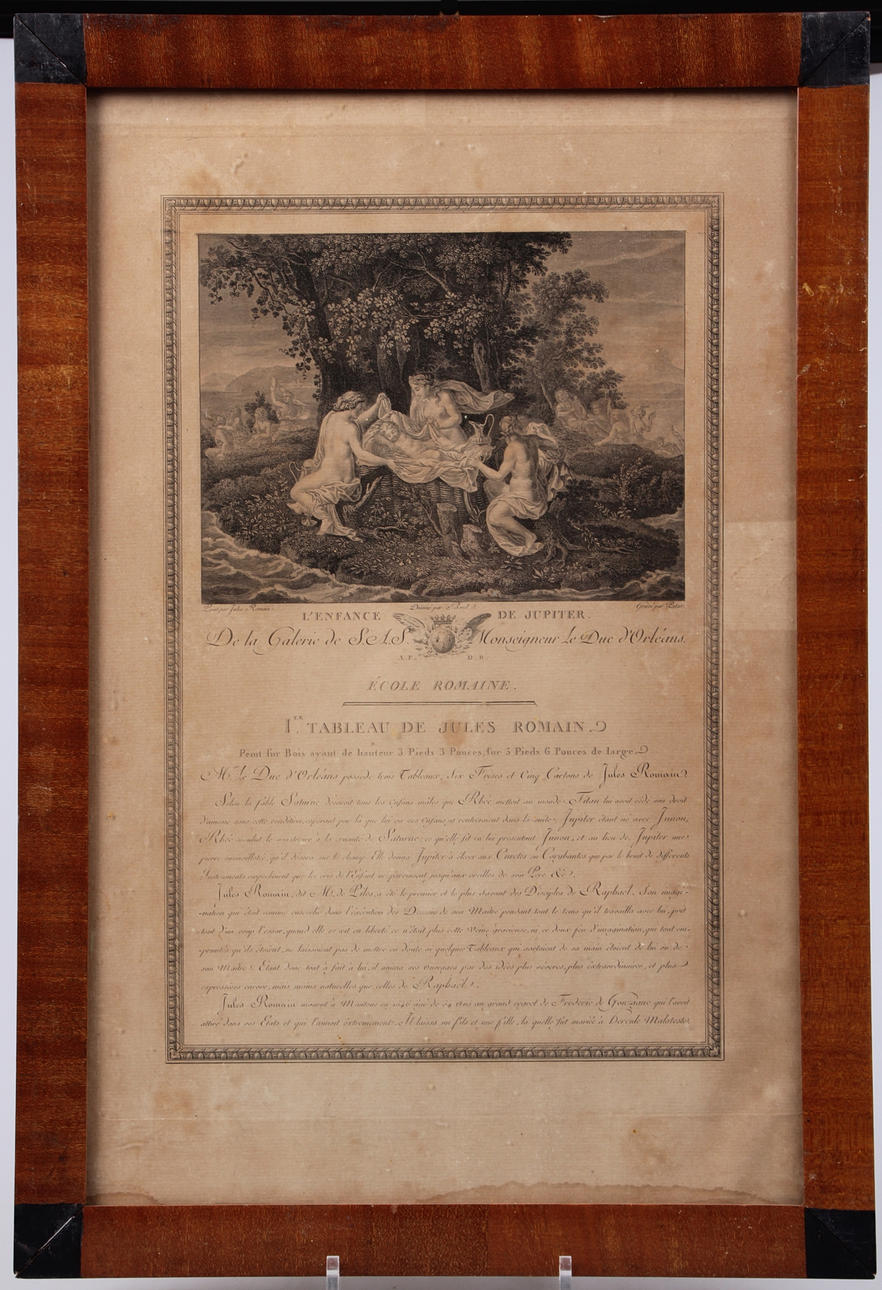 Peint par Jules Romain. Dessiné par Borel Gravé par Patas
L'ENFANCE DE JUPITER.
De la Galerie de S.A.S. Monseigneur le Duc d'Orléans.
A.P. D.R.
ÉCOLE ROMAINE.
I.ER TABLEAU DE JULES ROMAIN.
Peint sur Bois ayant de hauteur 3 Pieds 3 Pouces, sur 5 Pieds 6 Pouces de large.
M.gr le Duc d'Orléans possede trois Tableaux, Six Frises et Cinq Cartons de Jules Romain
Selon la fable Saturne dévoroit tous les Enfans mâles que Rhée mettoit au monde. Titan lui avoit cédé son droit
d'ainesse sous cette condition, espérant par là que lui ou ses Enfans y rentreroient dans la suite. Jupiter étant né avec Junon,
Rhée voulut le soustraire à la cruauté de Saturne, ce qu'elle fit en lui présentant Junon, et au lieu de Jupiter une
pierre emmaillotée, qu'il dévora sur le champ. Elle donna Jupiter à élever aux Curetes ou Corybantes qui par le bruit de differents
Instruments empechoient que les cris de l'Enfant ne parvinssent jusqu'aux oreilles de son Pere &c.
Jules Romain, dit M. de Piles, a été le premier et le plus savant des Disciples de Raphael. Son imagi-
-nation qui étoit comme ensevelie dans l'exécution des Desseins de son Maitre pendant tout le tems qu'il travailla avec lui, prit
tout d'un coup l'essor, quand elle se vit en liberté
ce n'étoit plus cette Veine gracieuse, ni ce doux feu d'imagination, qui tout em-
pruntés qu'ils étoient, ne laissoient pas de mettre en doute si quelques Tableaux qui sortoient de sa main étoient de lui ou de
son Maitre. Etant donc tout à fait à lui, il anima ses Ouvrages par des idées plus séveres, plus extraordinaires, et plus
expressives encore, mais moins naturelles que celles de Raphael.
Jules Romain mourut à Mantoue en 1546 âgé de 54 Ans au grand regret de Frederic de Gonzague qui l'avoit
attiré dans ses Etats et qui l'aimoit extremement. Il laissa un fils et une fille, la quelle fut mariée à Hercule Malateste.